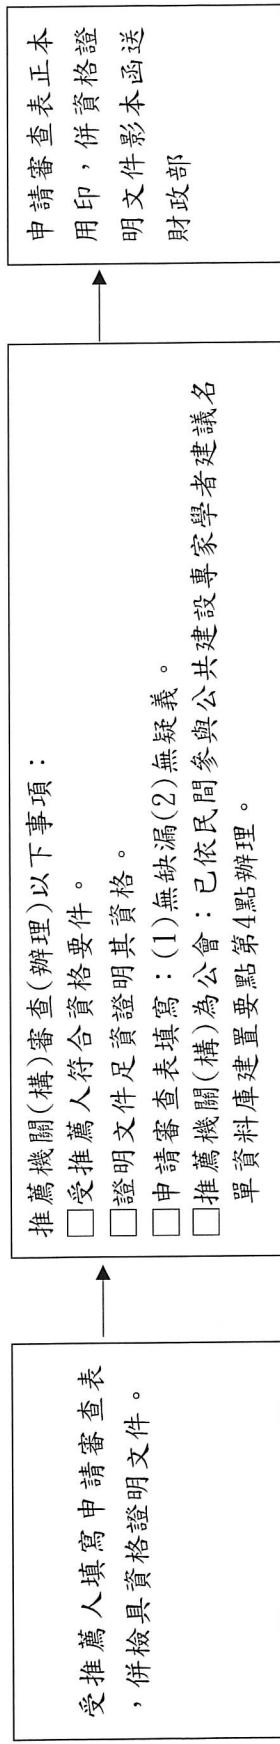 受推薦人填寫申請審查表
，併檢具資格證明文件。
推薦機關(構)審查(辦理)以下事項：
□受推薦人符合資格要件。
□證明文件足資證明其資格。
□申請審查表填寫：(1)無缺漏(2)無疑義。
□推薦機關(構)為公會：已依民間參與公共建設專家學者建議名
單資料庫建置要點第4點辦理。
申請審查表正本
用印，併資格證
明文件影本函送
財政部